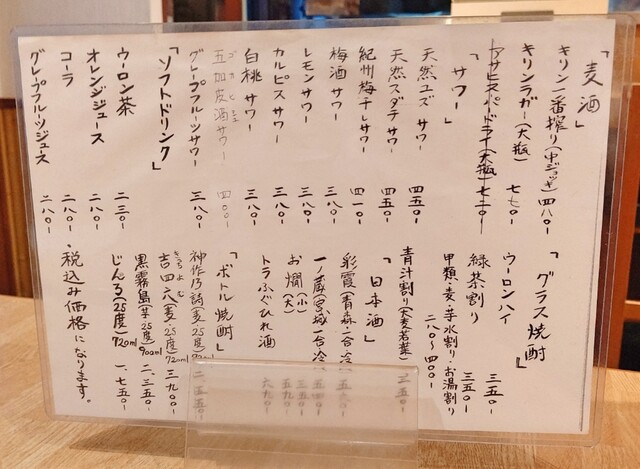 「麦酒」
キリン一番搾り(中ジョッキ) 四八〇-
キリンラガー(大瓶) 七七〇-
アサヒスーパードライ(大瓶) 七二〇-
「サワー」
天然ユズサワー 四五〇-
天然スダチサワー 四五〇-
紀州梅干しサワー 四一〇-
梅酒サワー 三八〇-
レモンサワー 三八〇-
カルピスサワー 三八〇-
白桃サワー 三八〇-
五加皮酒サワー 四〇〇-
グレープフルーツサワー 三八〇-
「ソフトドリンク」
ウーロン茶 二三〇-
オレンジジュース 二八〇-
コーラ 二八〇-
グレープフルーツジュース 二八〇-
「グラス焼酎」
ウーロンハイ 三五〇-
緑茶割り 三五〇-
甲類・麦・芋水割り・お湯割り
二八〇-四〇〇-
青汁割り(大麦若葉) 三五〇-
「日本酒」
彩霞(青森一合冷
一ノ蔵(宮城一合冷 五四〇-
お燗(小) 三五〇-
(大) 五九〇-
トラふぐひれ酒 六九〇-
「ボトル焼酎」
(麦・25度)720ml 二、五五〇-
吉四六(麦・25度)720ml 三、九〇〇-
きっちょむ
黒霧島(芋25度)900ml 二、三五〇-
じんろ(25度)720ml 一、七五〇-
・税込み価格になります。